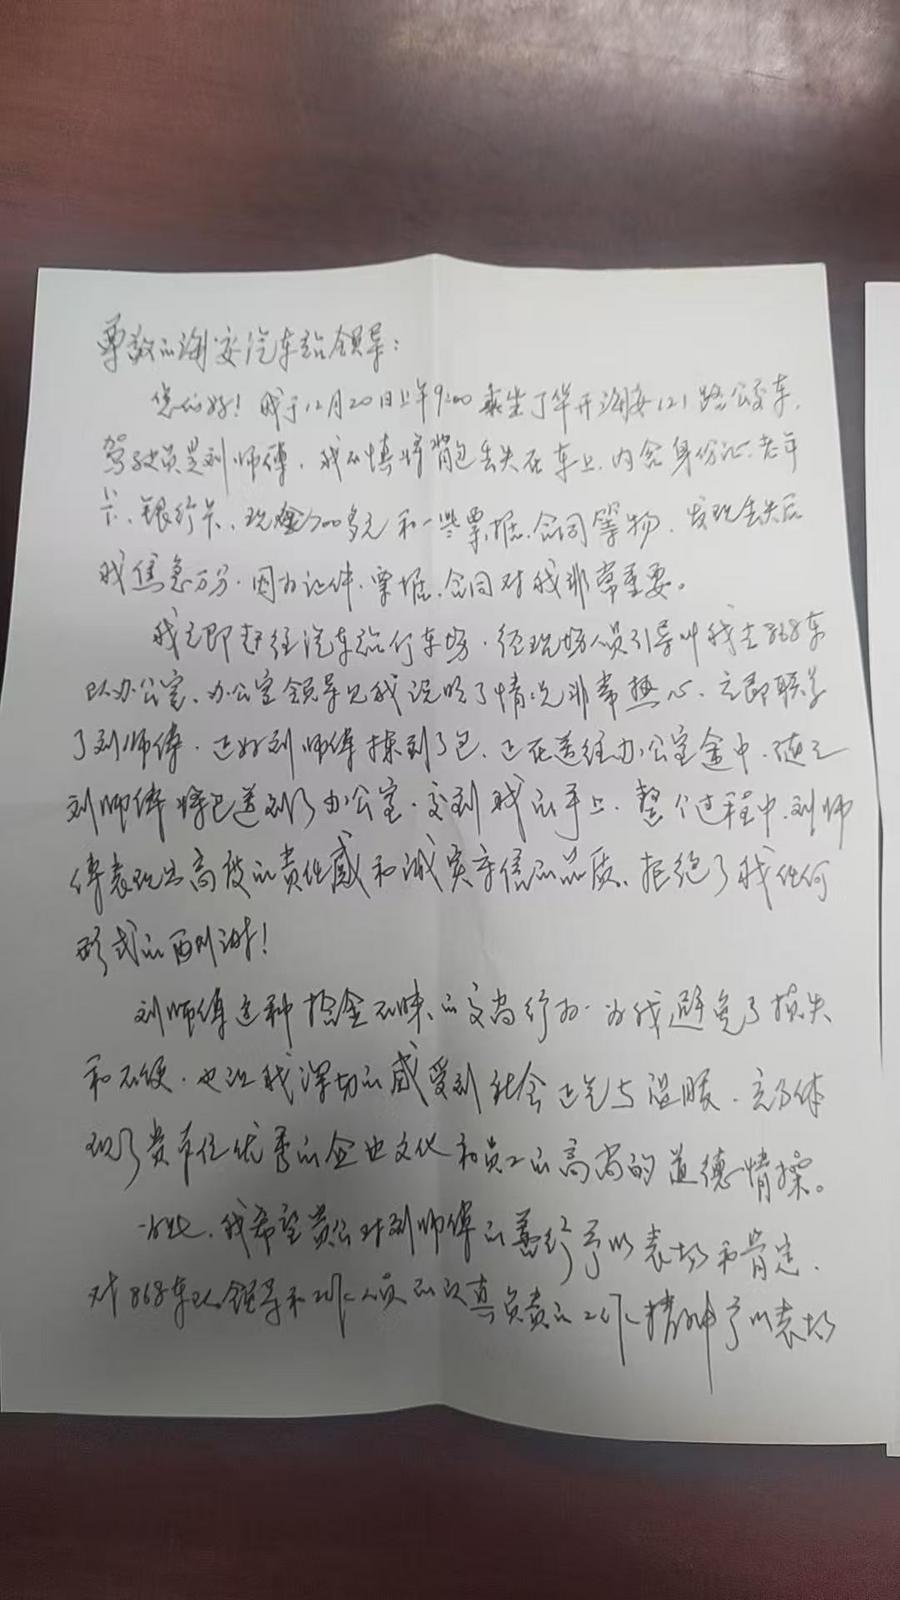 尊敬的海安汽车站领导：
您们好！我于12月20日上午9:00乘坐了华开海安121路公交车，
驾驶员是刘师傅，我不慎将背包丢失在车上，内含身份证、老年
卡、银行卡、现金700多元和一些票据、合同等物，发现丢失后
我焦急万分，因为证件、票据、合同对我非常重要。
我立即赶往汽车站停车场，经现场人员引导叫我去868车
队办公室、办公室领导见我说明了情况非常热心、立即联系
了刘师傅，正好刘师傅捡到了包，正在送往办公室途中，随之
刘师傅将包送到了办公室，交到我的手上，整个过程中，刘师
傅表现出高度的责任感和诚实守信的品质、拒绝了我任何
形式的酬谢！
刘师傅这种拾金不昧的高尚行为，为我避免了损失
和不便，也让我深切的感受到社会正气与温暖，充分体
现了贵单位优秀的企业文化和员工的高尚的道德情操。
在此，我希望贵公司对刘师傅的善行予以表扬和肯定，
对868车队领导和工作人员的认真负责的工作精神予以表扬